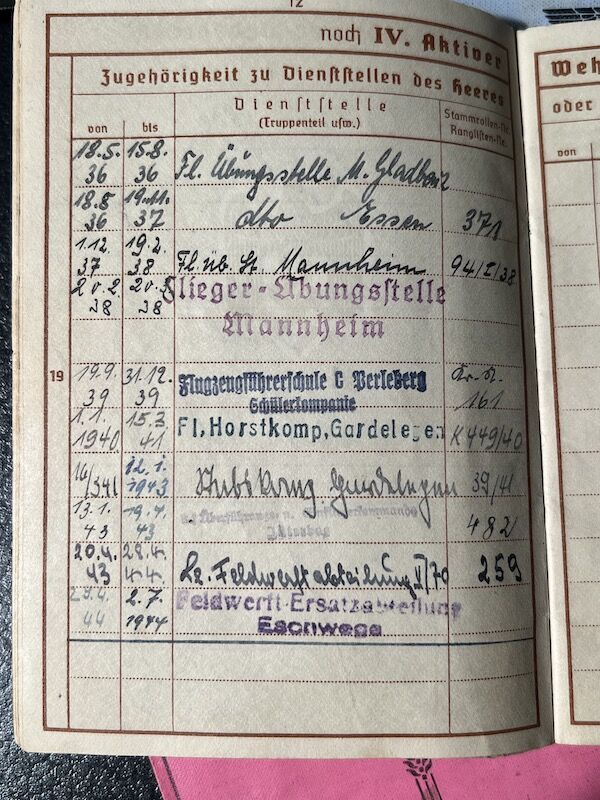 12
noch IV. Aktiver
Zugehörigkeit zu Dienststellen des Heeres
von bis Dienststelle (Truppenteil usw.) Stammrollen-Nr. Ranglisten-Nr.
18.5. 36 15.8. 36 Fl. Übungsstelle M. Gladbach
18.8 36 19.11. 37 dto Essen 371
1.12. 37 19.2. 38 Fl. üb. St. Mannheim 94/I/38
20.2. 38 20. 38 Flieger-Übungsstelle
Mannheim
19 19.9. 39 31.12. 39 Flugzeugführerschule C Perleberg
Schülerkompanie 161
1.1. 1940 15.3. 41 Fl. Horstkomp. Gardelegen K449/40
16/3 41 12.1. 1943 Gardelegen 39/41
13.1. 43 19.4. 43 482
Jüterbog
20.4. 43 28.4. 44 Lz. Feldwerftabteilung II/70 259
29.4. 44 2.7. 1944 Feldwerft-Ersatzabteilung
Eschwege
Weh
oder
von